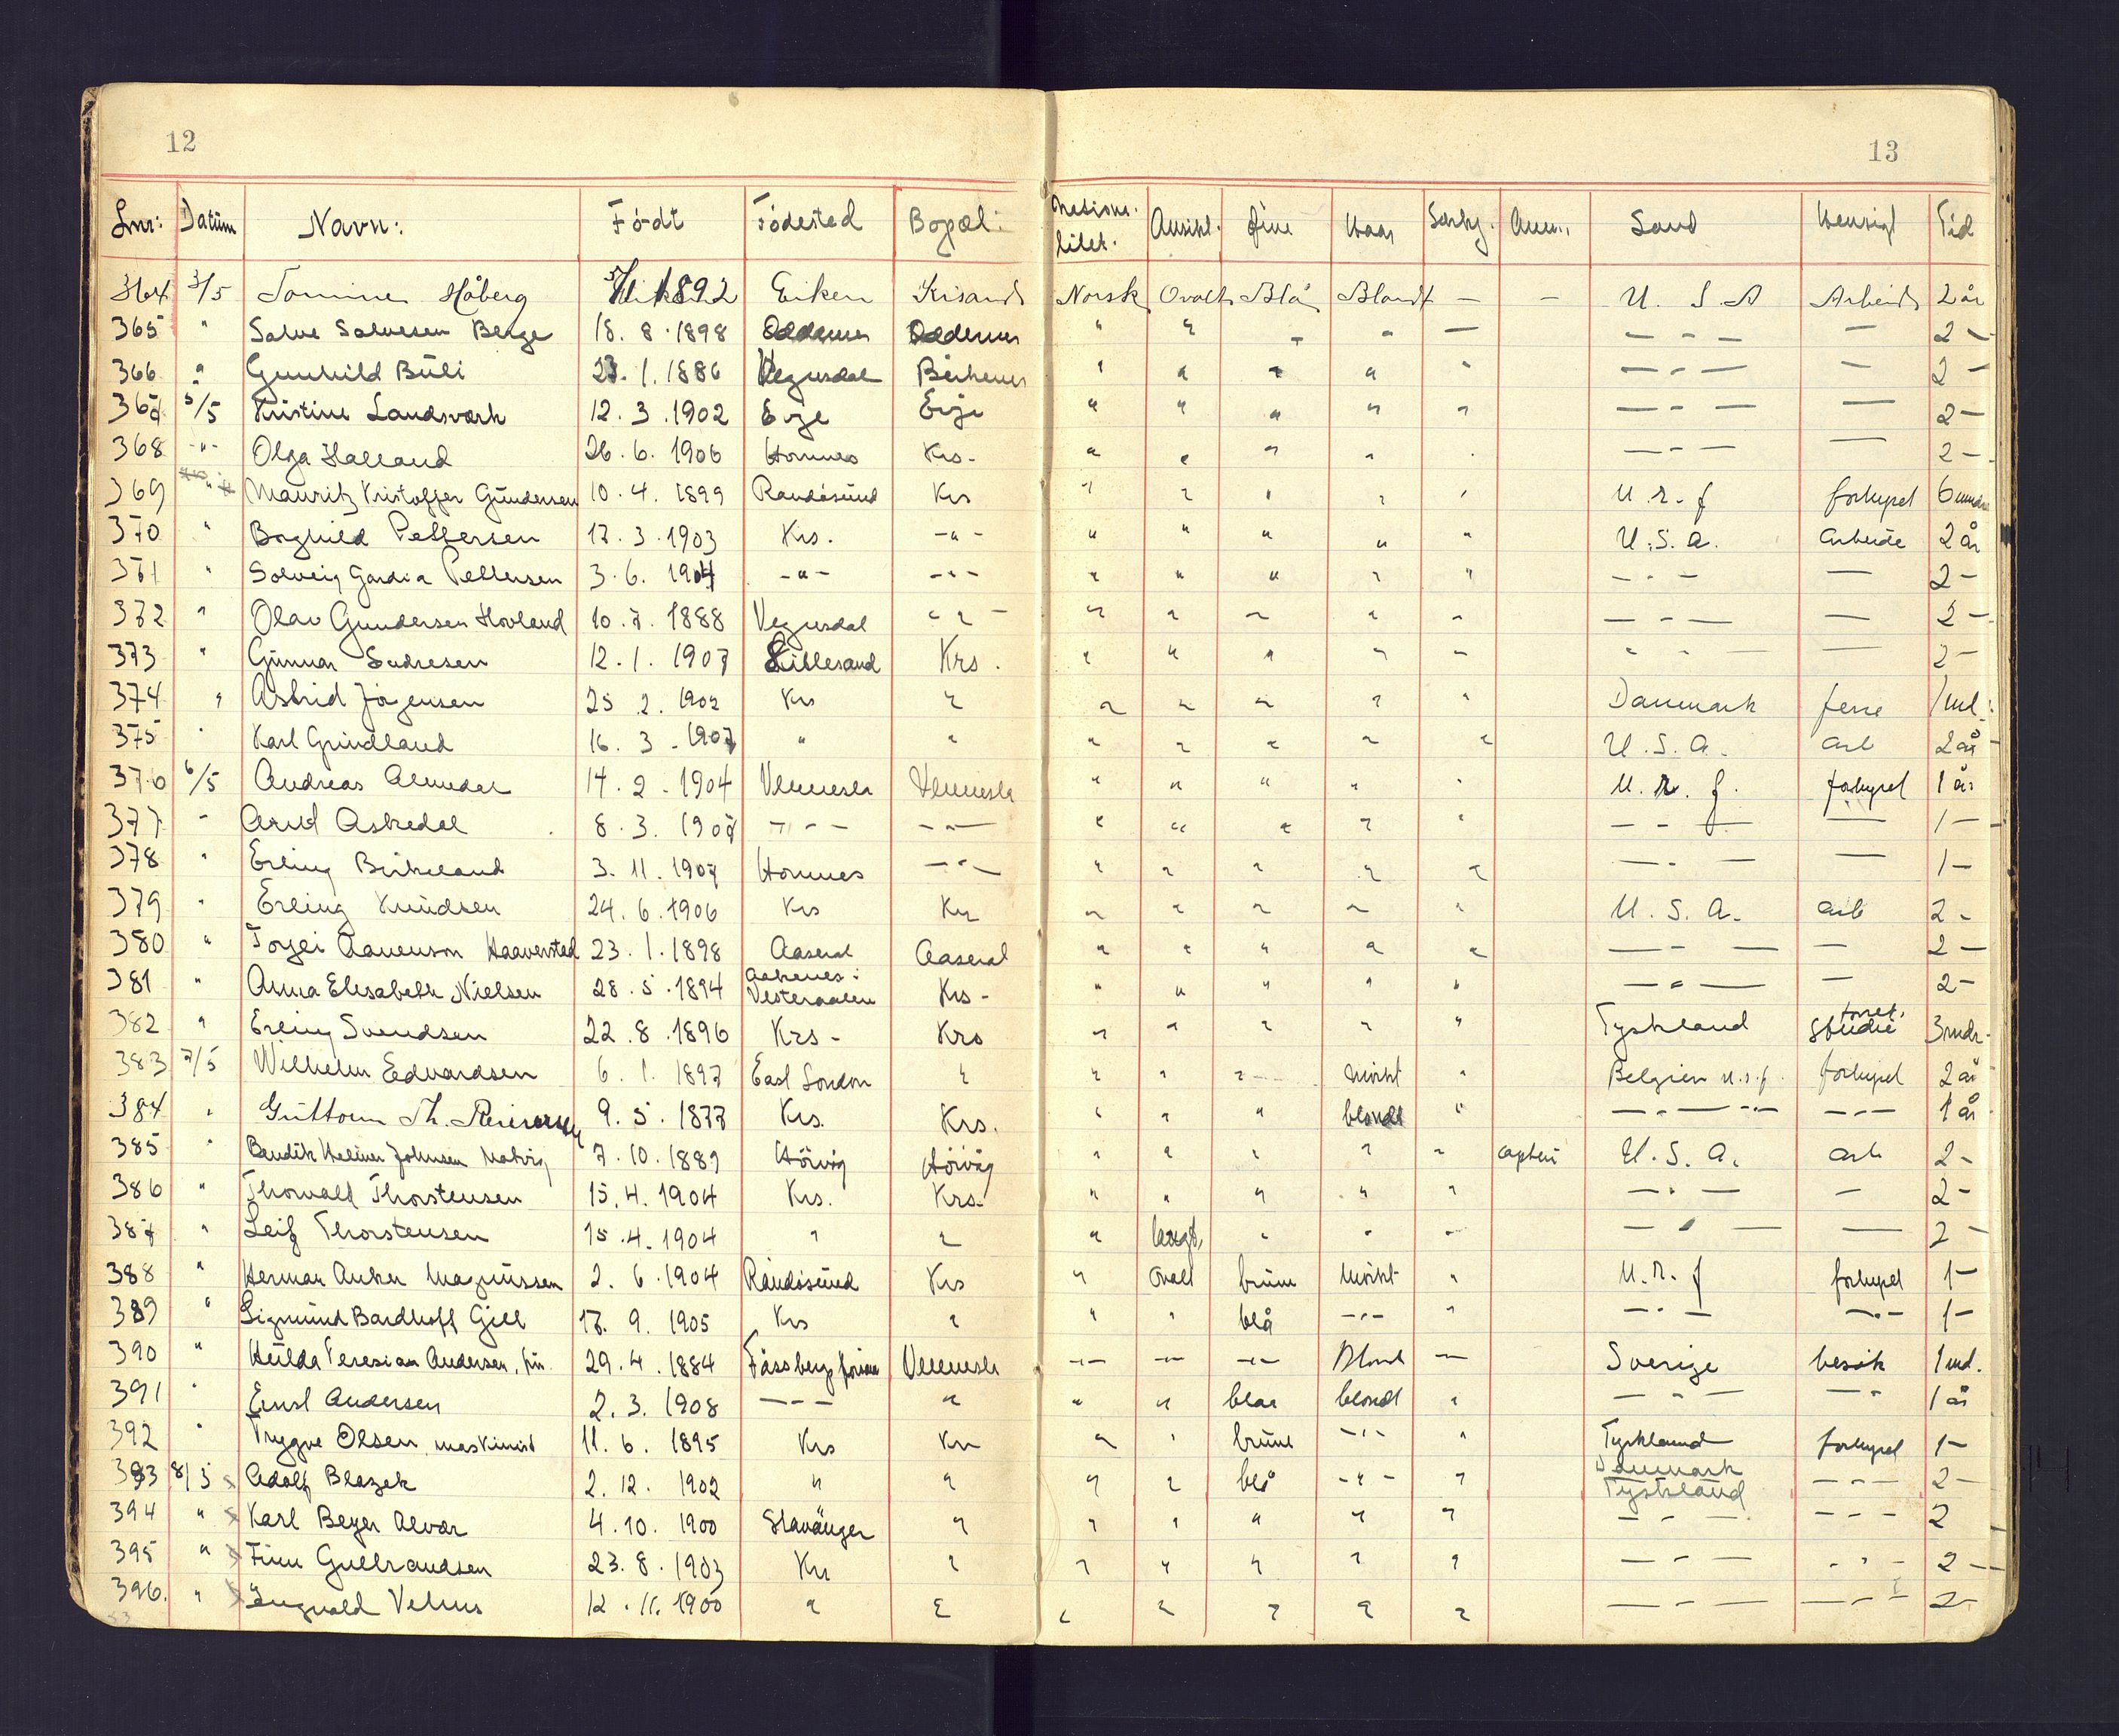 12
13
Lnr: Datum Navn: Født Fødested Bopæl: Nasjona- litet. Ansikt. Øine Haar Særkj. Anm. Land Hensigt Tid
364 3/5 Håberg 1892 Eiken Krisand Norsk Ovalt Blå Blondt — — U.S.A Arbeid 2 år
365 " Salve Salvesen Berge 18.8.1898 Oddernes Oddernes " " " " — — - — — 2 —
366 " Gunhild Buli 23.1.1886 Vegusdal Birkenes " " " " " — - — — 2 —
367 5/5 Kristine Landsverk 12.3.1902 Evje Evje " " " " " — - — — 2 —
368 -"- Olga Halland 26.6.1906 Homnes Krs. " " " " " — - — — 2 —
369 " Mauritz Kristoffer Gundersen 10.4.1899 Randøsund Krs " " " " " U.r.f forhyret 6 mndr
370 " Borghild Pettersen 17.3.1903 Krs. -"- " " " " " U.S.A. Arbeide 2 år
371 " Solveig Gordia Pettersen 3.6.1904 -"- -"- " " " " " — - — — 2 —
372 " Olav Gundersen Hovland 10.7.1888 Vegusdal -"- " " " " " — - — — 2 —
373 " Gunnar Endresen 12.1.1907 Lillesand Krs. " " " " " " " — — 2 —
374 " Astrid Jörgensen 25.2.1902 Krs " " " " " " Danmark ferie 1 md.
375 " Karl Grindland 16.3.1907 " " " " " " " U.S.A. arb 2 år
376 6/5 Andreas 14.2.1904 Vennesla Vennesla " " " " " U.r.f. forhyret 1 år
377 " Arvid Askedal 8.3.1907 -"- -"- " " " " " — - — — 1 —
378 " Erling Birkeland 3.11.1907 Homnes -"- " " " " " — - — — 1 —
379 " Erling Knudsen 24.6.1906 Krs Krs " " " " " U.S.A. arb 2 -
380 " Haaversted 23.1.1898 Aaseral Aaseral " " " " " — - — — 2 —
381 " Anna Elisabeth Nielsen 28.5.1894 Vesteraalen Krs - " " " " " — " — — 2 -
382 " Erling Svendsen 22.8.1896 Krs - Krs " " " " " Tyskland forret. studie 3 mdr.
383 7/5 Wilhelm Edvardsen 6.1.1897 East London " " " " mörkt " Belgien u.r.f. forhyret 2 år
384 " Guttorm Th. Reiersen 9.5.1877 Krs. Krs. " " " blondt " — " — "— -"- 1 år
385 " Bendik Johnsen 7.10.1889 Hövåg Hövåg " " " " " U.S.A. arb 2 -
386 " Thorvald Thorstensen 15.4.1904 Krs. Krs. " " " " " — " — — 2 -
387 " Leif Thorstensen 15.4.1904 " " " langt, " " " — " — — 2 -
388 " Herman Anker Magnussen 2.6.1904 Randøsund Krs " Ovalt brune mörkt " U.r.f forhyret 1 —
389 " Sigmund Bardhoff Gill 17.9.1905 Krs " " " blå -"- " — - — -"- 1 —
390 " Hulda Teresia Andersen, 29.4.1884 Fåssberg Vennesla -"- -"- -"- Blond — Sverige besök 1 md.
391 " Ernst Andersen 2.3.1908 -"- " " " blaa blondt " — " — -"- 1 år
392 " Trygve Olsen, maskinist 11.6.1895 Krs Krs " " brune -"- " Tyskland forhyret 1 —
393 8/5 Adolf Blazek 2.12.1902 " " " " blå -"- " Danmark Tyskland -"- 2 —
394 " Karl Beyer Alvær 4.10.1900 Stavanger " " " " " " — - — - - - 2
395 " Finn Gulbrandsen 23.8.1903 Krs " " " " " " — - — - " - 2 —
396. " Ingvald 12.11.1900 " " " " " " " — - — — " - 2 -